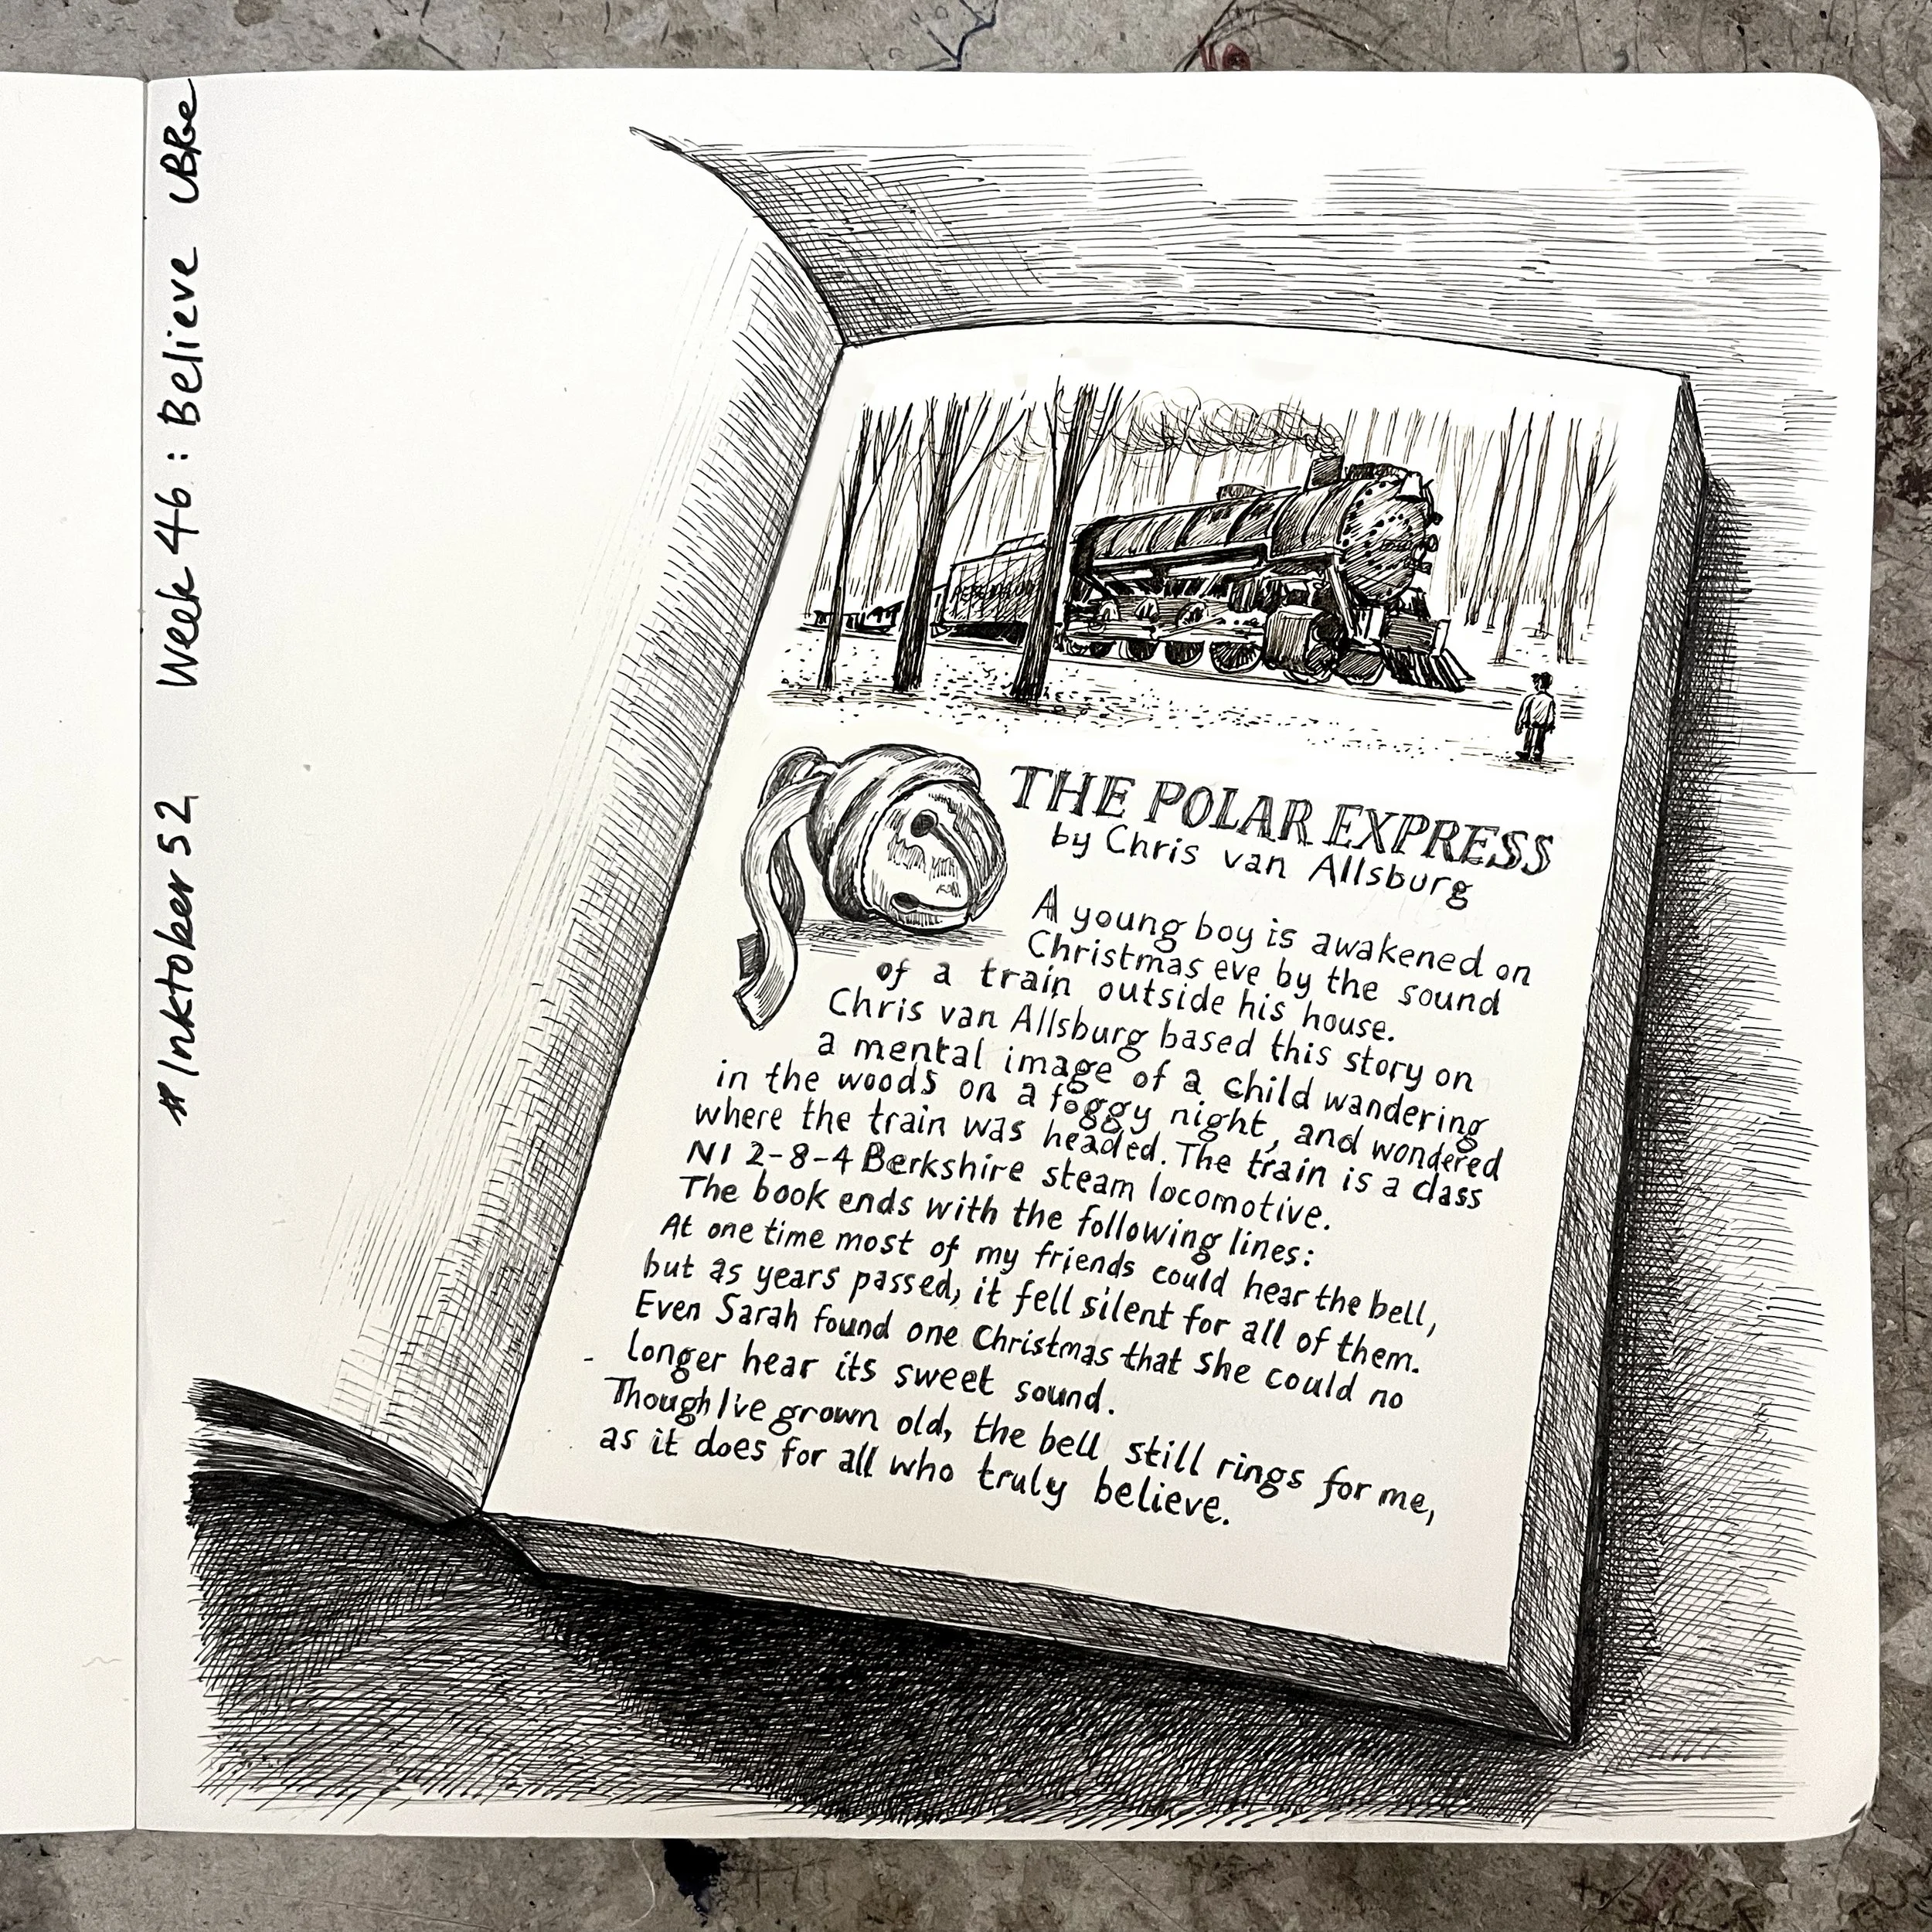 #Inktober52 Week 46 : Believe
THE POLAR EXPRESS
by Chris van Allsburg
A young boy is awakened on
Christmas eve by the sound
of a train outside his house.
Chris van Allsburg based this story on
a mental image of a child wandering
in the woods on a foggy night, and wondered
where the train was headed. The train is a class
N1 2-8-4 Berkshire steam locomotive.
The book ends with the following lines:
At one time most of my friends could hear the bell,
but as years passed, it fell silent for all of them.
Even Sarah found one Christmas that she could no
longer hear its sweet sound.
Though I've grown old, the bell still rings for me,
as it does for all who truly believe.